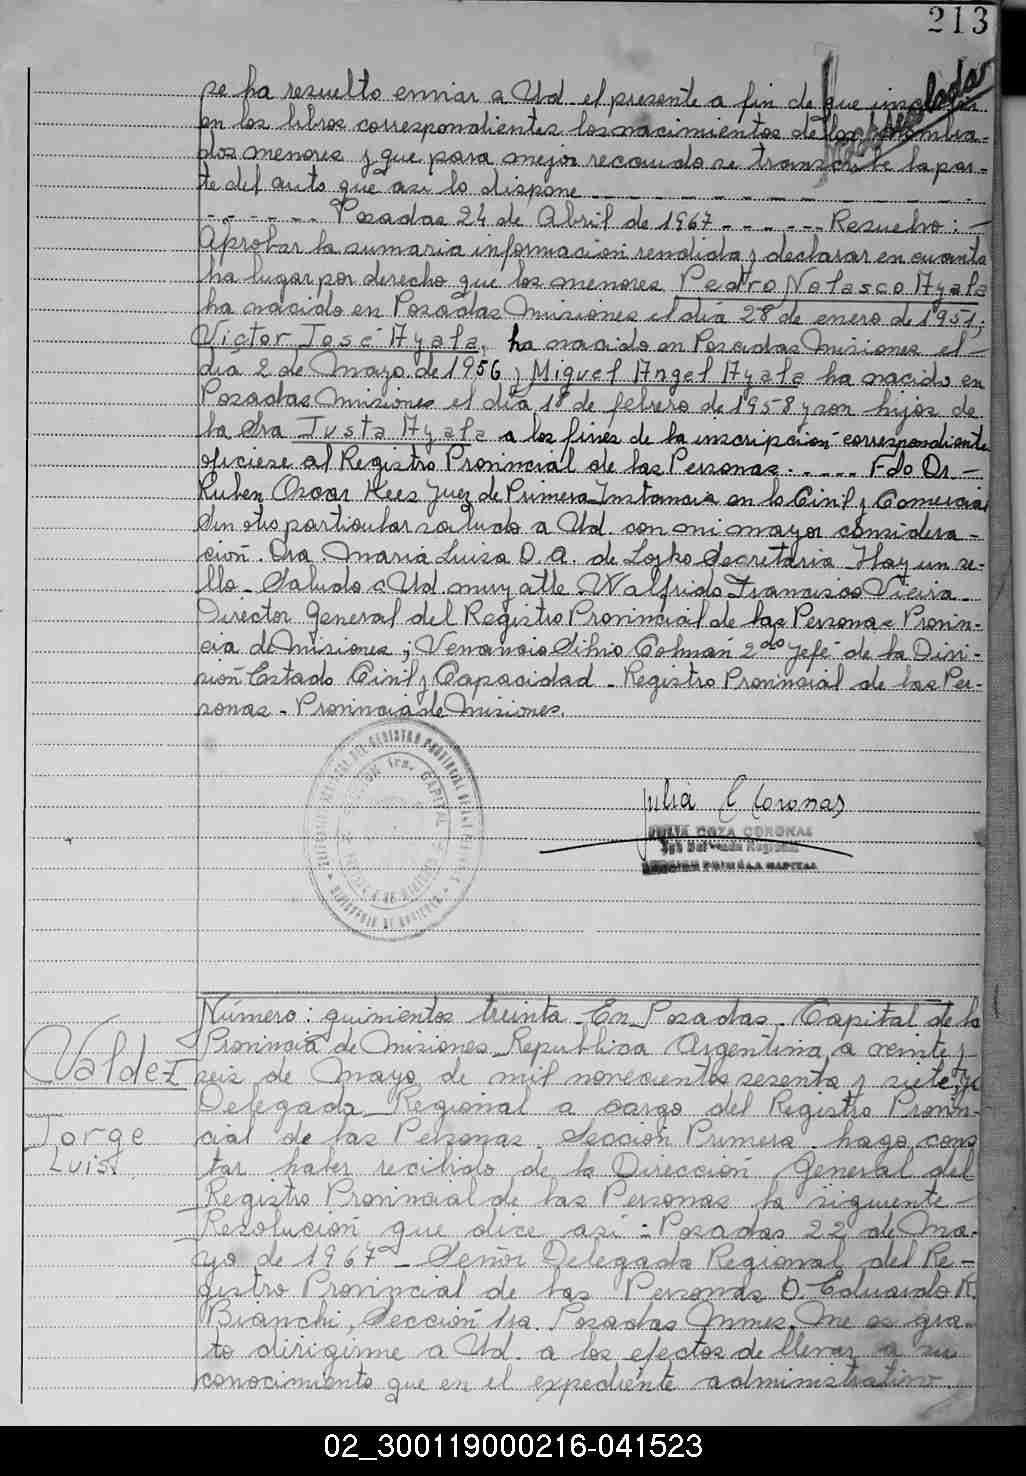 213
se ha resuelto enviar a Ud. el presente a fin de que inscriba
en los libros correspondientes los nacimientos de los nombra-
dos menores y que para mejor recaudo se transcribe la par-
te del auto que asi lo dispone
Posadas 24 de Abril de 1967 - - - - - - Resuelvo: -
Aprobar la sumaria informacion rendida y declarar en cuanto
ha lugar por derecho que los menores Pedro Nolasco Ayala
ha nacido en Posadas Misiones el dia 28 de enero de 1951;
Victor José Ayala, ha nacido en Posadas Misiones el -
dia 2 de Mayo de 1956 y Miguel Angel Ayala ha nacido en
Posadas Misiones el dia 18 de febrero de 1958 y son hijos de
la Sra Justa Ayala a los fines de la inscripción correspondiente
oficiese al Registro Provincial de las Personas. - - - - Fdo Dr. -
Ruben Oscar Rees Juez de Primera Instancia en lo Civil y Comercial
Sin otro particular saludo a Ud. con mi mayor considera-
ción. Dra. Maria Luisa O. A. de Lojko Secretaria Hay un se-
llo - Saludo a Ud muy atte Walfrido Francisco Vieira -
Director General del Registro Provincial de las Personas Provin-
cia de Misiones; Venancio Silvio Colmán 2do Jefe de la Divi-
sión Estado Civil y Capacidad - Registro Provincial de las Per-
sonas - Provincia de Misiones.
Julia C Coronas
JULIA COZA CORONAS
SECCION PRIMERA CAPITAL
Número: quinientos treinta En Posadas Capital de la
Valdez
Provincia de Misiones Republica Argentina a veinte y
seis de Mayo de mil novecientos sesenta y siete, yo
Delegada Regional a cargo del Registro Provin-
Jorge
cial de las Personas Sección Primera hago cons
Luis.
tar haber recibido de la Dirección General del
Registro Provincial de las Personas la siguiente -
Resolución que dice asi: Posadas 22 de Ma-
yo de 1967 - Señor Delegada Regional del Re-
gistro Provincial de las Personas D. Eduardo R.
Bianchi, Sección 1ra. Posadas Mnes. Me es gra-
to dirigirme a Ud. a los efectos de llevar a su
conocimiento que en el expediente administrativo
02_300119000216-041523